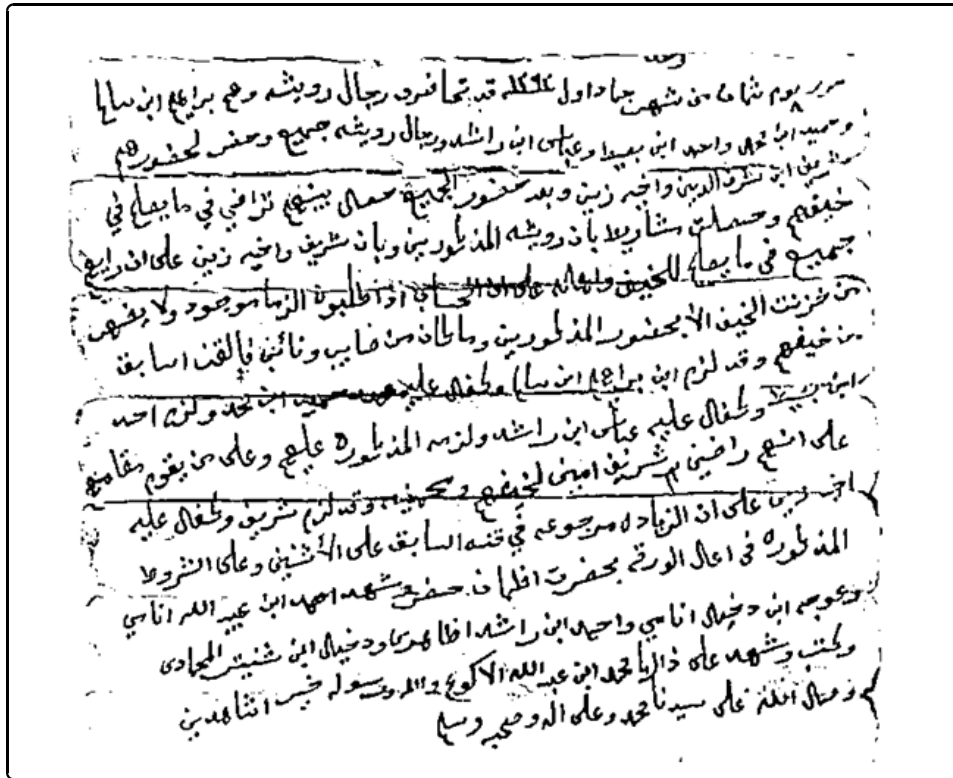 حرر يوم ثمان من شهر جماد اول ١٢٩٢ قد تحاضرو رجال رويثه وهم براهيم ابن سالم
وحميد ابن محمد واحمد ابن وعباس ابن راشد ورجال رويثه جميع وحضر لحضورهم
شريف ابن شرف الدين واخيه زين وبعد حضور الجميع حصل بينهم تراضي في ما يصلح في
خيفهم وحصلت مشاريط بان رويثه المذكورين وبان شريف واخيه زين على ان رايهم
جميع في ما يصلح للخيف على ان الحساب اذا طلبوه الزما موجود ولا يضهر
من خزنت الخيف الا بحضور المذكورين وما كان من خايب ونائب فالقنه اسابق
من خيفهم وقد لزم ابن براهيم ابن سالم وكفل عليه حميد ابن محمد ولزم احمد
ابن وكفل عليه عباس ابن راشد ولزمه المذكوره عليهم وعلى من يقوم مقامهم
على انهم راضين شريف امين لخيفهم وقد لزم شريف وكفل عليه
اخيه زين على ان الزياده مرجوعه في قنه السابق على الاثنين وعلى الشروط
المذكوره في اعال الورقه بحضرت افلمان حضر وشهد احمد ابن عبد الله اناسي
وعوجه ابن دخيل اناسي واحمد ابن راشد اظاهري ودخيل ابن شنيتر المحمادي
وكتب وشهد على ذالك محمد ابن عبد الله الاكوع والله ورسوله خير اشاهدين
وصل الله على سيدنا محمد وعلى اله وصحبه وسلم